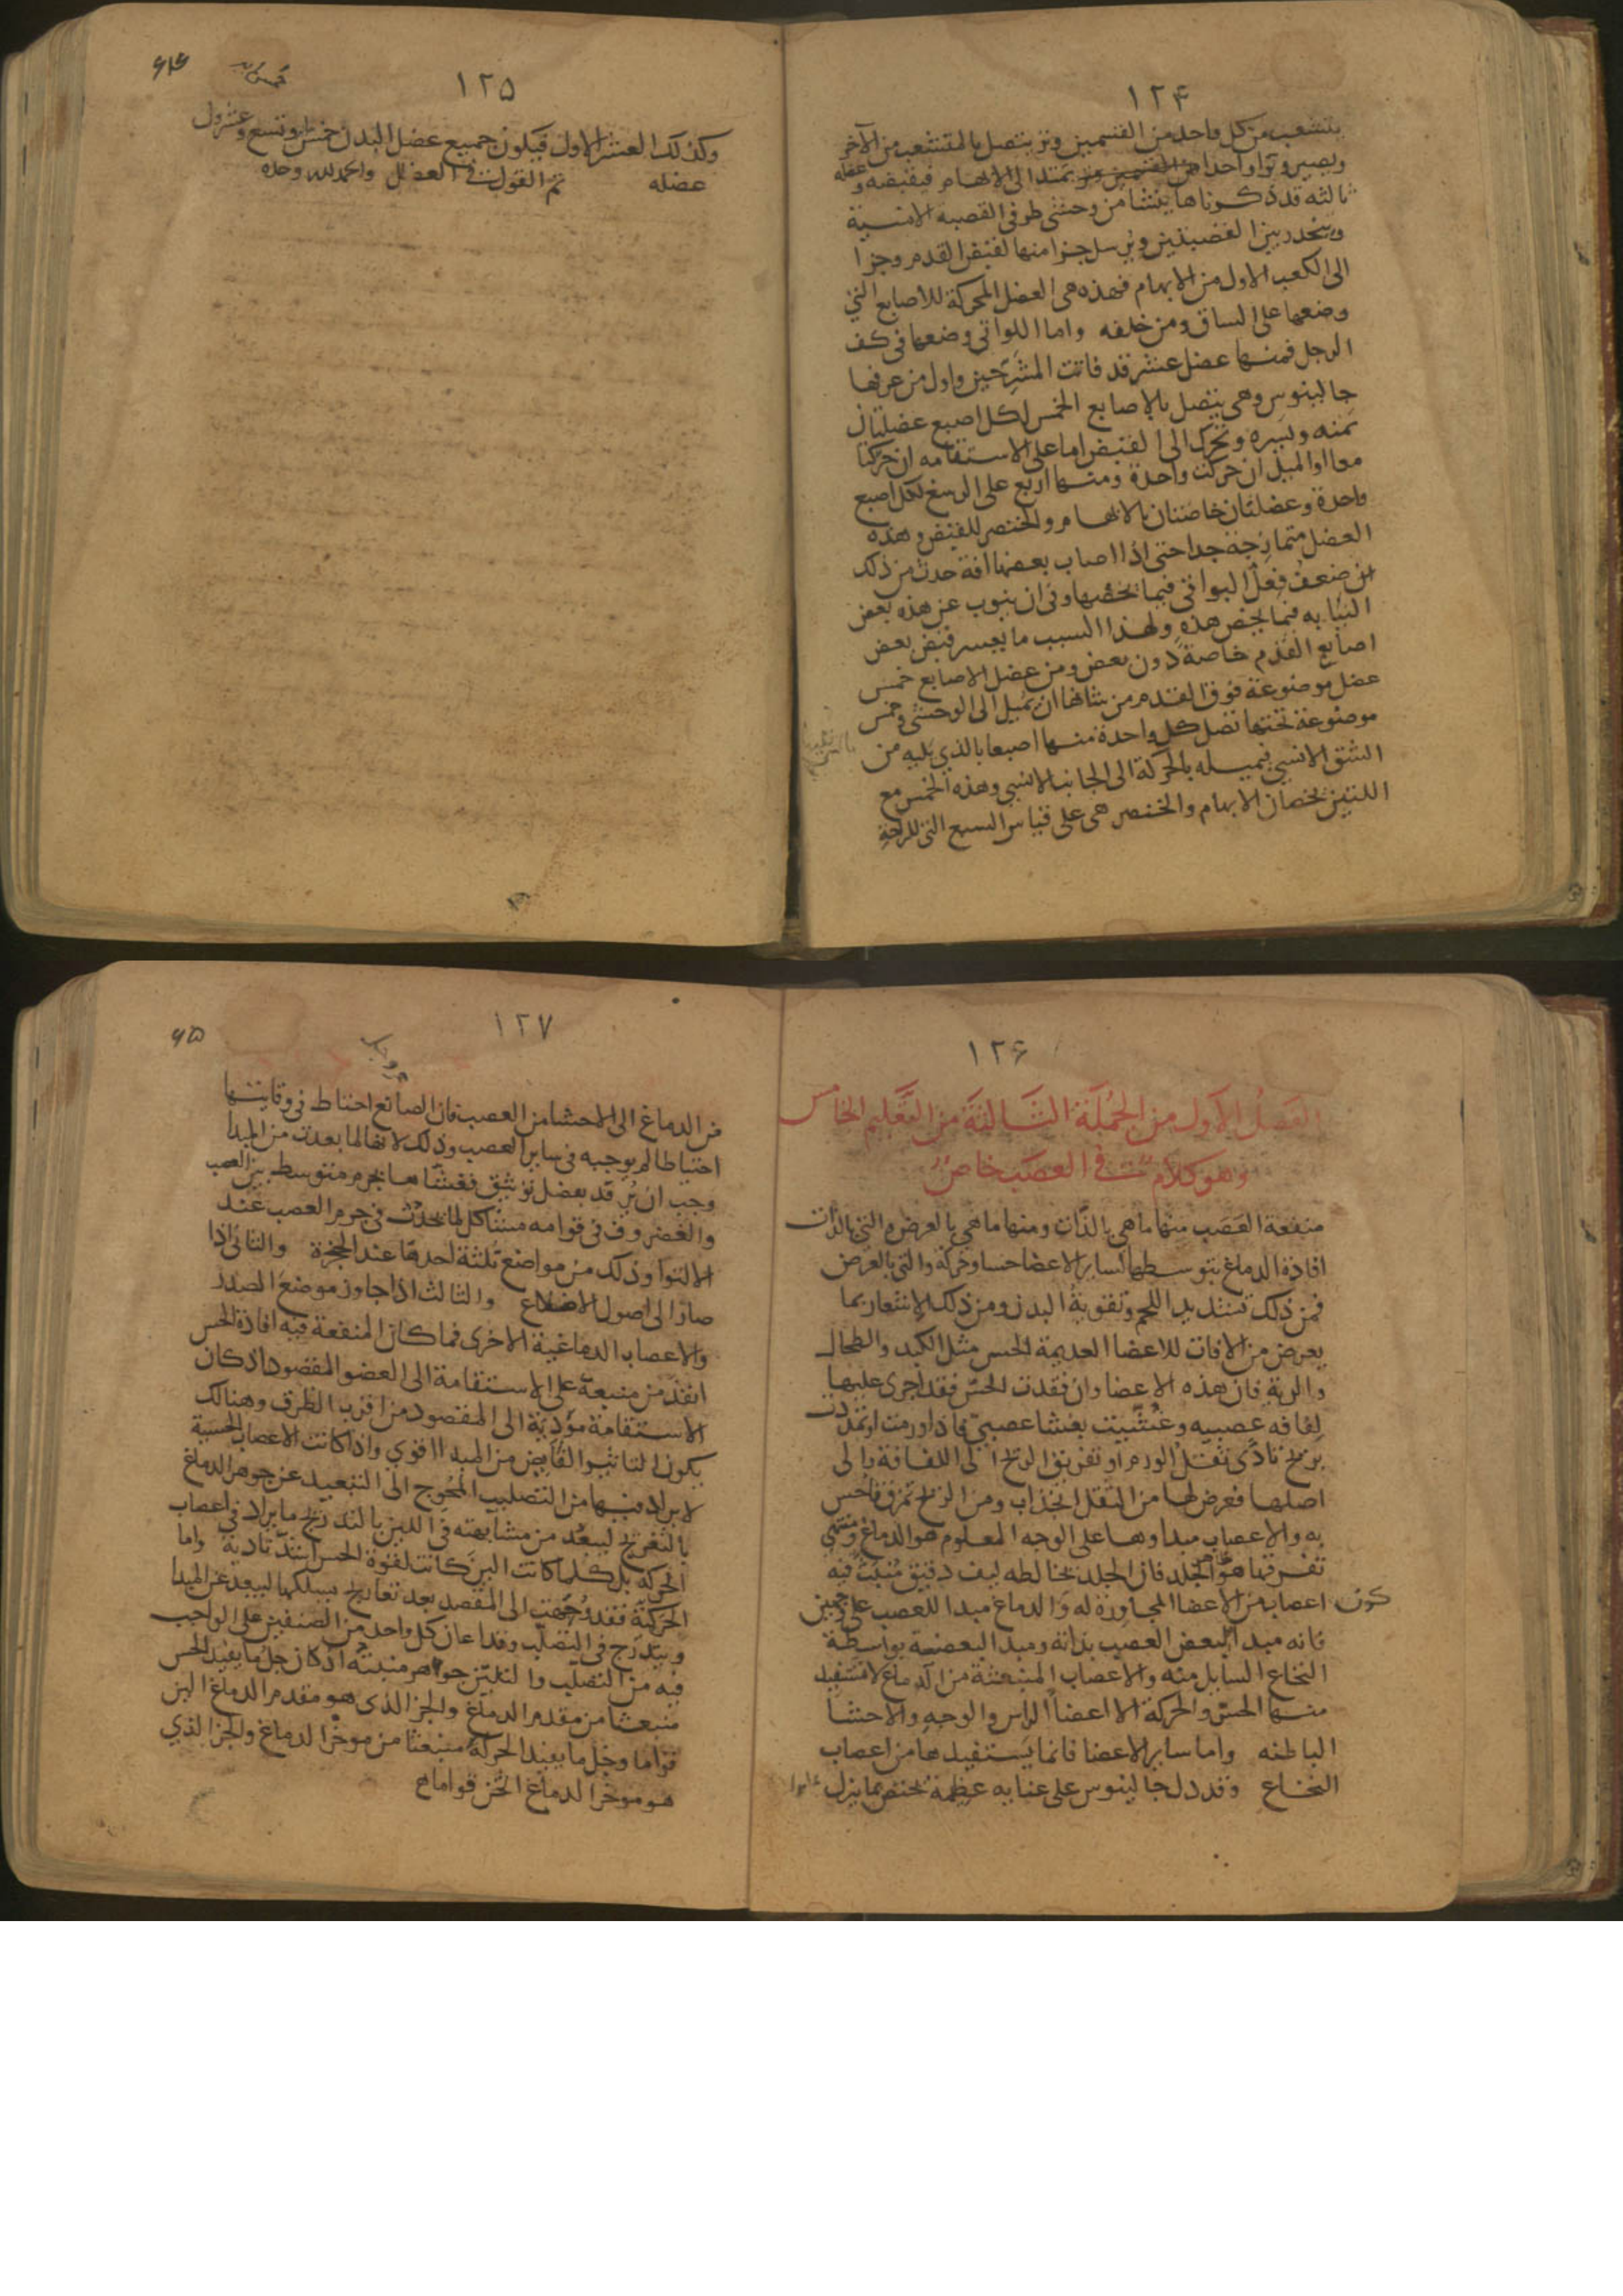 ١٢۴
يتشعب من كل واحد من القسمين وتر يتصل بالمتشعب من الآخر
ويصير وترا واحدا يمتد الى الابهام فيقبضه وعضله
ثالثه قد ذكرناها ينشا من وحشى طرفى القصبه الانسية
وينحدر بين القصبتين ويرسل جزا منها لقبض القدم وجزا
الى الكعب الاول من الابهام فهذه هى العضل المحركة للاصابع التى
وضعها على الساق ومن خلفه واما اللواتى وضعها فى كف
الرجل فمنها عضل عشر قد فاتت المشرّحين واول من عرفها
جالينوس وهى يتصل بالاصابع الخمس لكل اصبع عضلتان
يمنه ويسره ويحرك الى القبض اما على الاستقامه ان حركتا
معا او الميل ان حركت واحدة ومنها اربع على الرسغ لكل اصبع
واحدة وعضلتان خاصتان بالابهام والخنصر للقبض وهذه
العضل متمازجة جدا حتى اذا اصاب بعضها افة حدث من ذلك
ان ضعف فعل البواقى فيما يخصها وفى ان ينوب عن هذه بعض
النيابه فيما يخص هذه ولهذا السبب ما يعسر قبض بعض
اصابع القدم خاصة دون بعض ومن عضل الاصابع خمس
عضل موضوعة فوق القدم من شانها ان يميل الى الوحشى وخمس
موضوعة تحتها تصل كل واحدة منها اصبعا بالذي يليه من
الشق الانسي فيميله بالحركة الى الجانب الانسي وهذه الخمس مع
اللتين يخصان الابهام والخنصر هى على قياس السبع التى للراحة
١٢۵
۶۴
وكذلك العشر الاول فيكون جميع عضل البدن خمس وتسع وعشرون
عضله تم القول فى العضل والحمد لله وحده
١٢۶
الفصل الاول من الجملة الثالثة من التعليم الخامس
وهو كلام فى العصب خاص
منفعة العصب منها ما هى بالذات ومنها ما هى بالعرض والتى بالذات
افادة الدماغ بتوسطها لساير الاعضا حسا وحركة والتى بالعرض
فمن ذلك تشديد اللحم وتقوية البدن ومن ذلك الاشعار بما
يعرض من الافات للاعضا العديمة الحس مثل الكبد والطحال
والرية فان هذه الاعضا وان فقدت الحسّ فقد اجرى عليها
لفافه عصبيه وغُشّيت بغشا عصبيّ فاذا ورمت او تمددت
بريح تادّى ثقل الورم او تفريق الريح الى اللفافة والى
اصلها فعرض لها من الثقل انجذاب ومن الريح تمزق فاحس
به والاعصاب مبداوها على الوجه المعلوم هو الدماغ ومنتهى
تفرقها هو الجلد فان الجلد يخالطه ليف دقيق منبث فيه
اعصاب من الاعضا المجاورة له والدماغ مبدا للعصب على وجهين
فانه مبدا لبعض العصب بذاته ومبدا لبعضه بواسطة
النخاع السايل منه والاعصاب المنبعثة من الدماغ لا تستفيد
منها الحسّ والحركة الا اعضا الراس والوجه والاحشا
الباطنه واما ساير الاعضا فانما يستفيدها من اعصاب
النخاع وقد دل جالينوس على عنايه عظيمة تختص بما ينزل
كون
١٢٧
۶۵
من الدماغ الى الاحشا من العصب فان الصانع احتاط فى وقايتها
احتياطا لم يوجبه فى ساير العصب وذلك لانها لما بعدت من المبدا
وجب ان يُرفد بفضل توثيق فغشّاها بجرم متوسط بين العصب
والغضروف فى قوامه مشاكل لما يحدث فى جرم العصب عند
الالتوا وذلك من مواضع ثلثة احدها عند الحنجرة والثانى اذا
صار الى اصول الاضلاع والثالث اذا جاوز موضع الصدر
والاعصاب الدماغية الاخرى فما كان المنفعة فيه افادة الحس
انفذ من منبعه على الاستقامة الى العضو المقصود اذ كان
الاستقامة مؤدية الى المقصود من اقرب الطرق وهنالك
يكون التاثير الفايض من المبدا اقوي واذا كانت الاعصاب الحسية
لا يراد فيها من التصليب المُحوج الى التبعيد عن جوهر الدماغ
بالتعريج ليبعُد من مشابهته فى اللين بالتدريج ما يراد فى اعصاب
الحركه بل كلما كانت الين كانت لقوة الحس اشد تادية واما
الحركيّة فقد وُجّهت الى المقصد بعد تعاريج يسلكها ليبعد عن المبدا
ويتدرّج فى التصلّب وقد اعان كل واحد من الصنفين على الواجب
فيه من التصليب والتليين جواهر منبته اذ كان جل ما يفيد الحس
منبعثا من مقدم الدماغ والجز الذى هو مقدم الدماغ الين
قواما وجُل ما يفيد الحركة منبعثا من موخر الدماغ والجز الذي
هو موخر الدماغ اثخن قواما